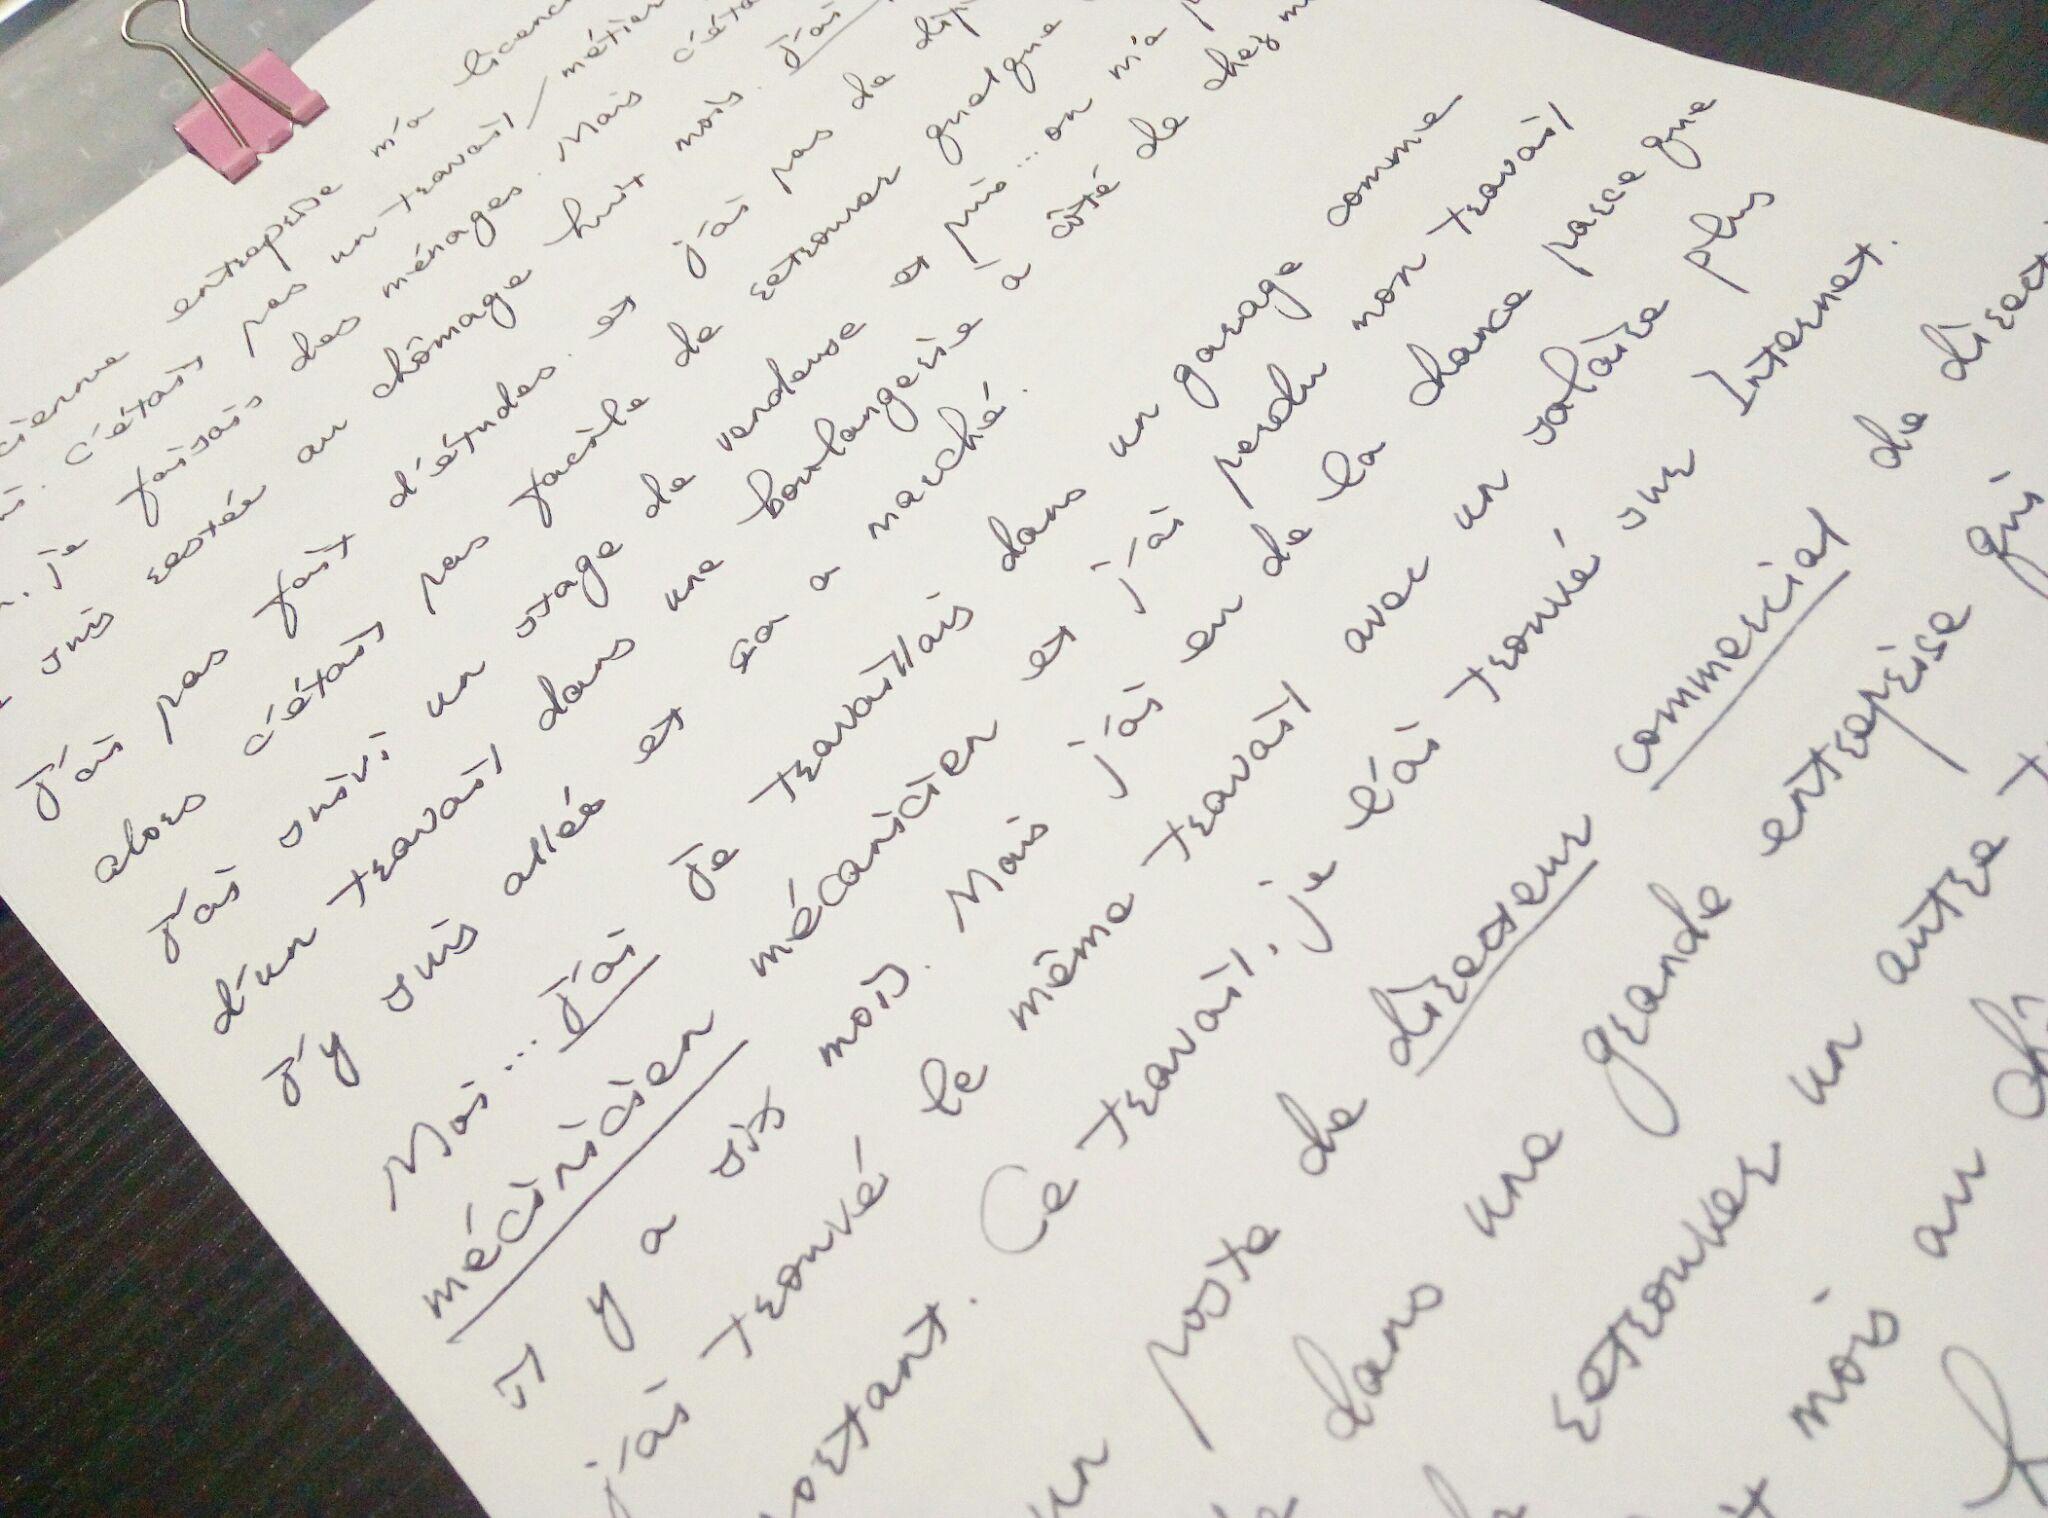 entreprise m'a
c'était pas un travail/métier
je faisais des ménages. Mais
suis restée au chômage huit mois. J'ai
J'ai pas fait d'études et j'ai pas de
alors c'était pas facile de retrouver quelque
J'ai suivi un stage de vendeuse et puis... on m'a
d'un travail dans une boulangerie à côté de chez
J'y suis allée et ça a marché.
Mai... J'ai Je travaillais dans un garage comme
mécinicien mécanicien et j'ai perdu mon travail
il y a six mois. Mais j'ai eu de la chance parce que
j'ai trouvé le même travail avec un salaire plus
Ce travail, je l'ai trouvé sur Internet.
un poste de directeur commercial de
dans une grande entreprise qui
retrouver un autre
mois au